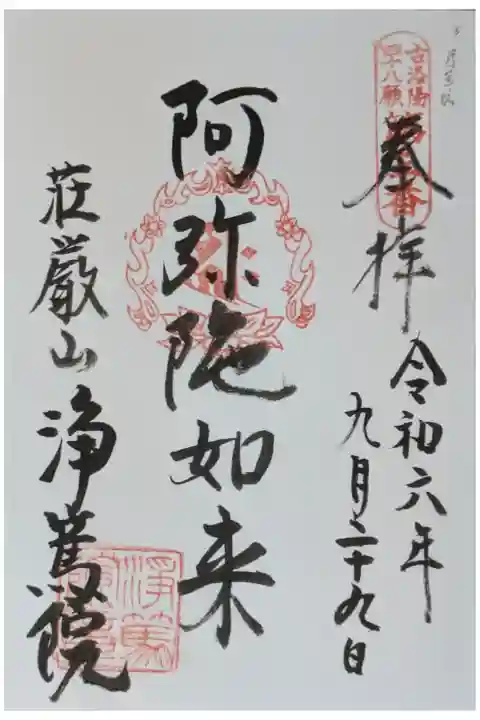 古洛陽
四十八願
奉拝
令和六年
九月二十九日
阿弥陀如来
荘厳山 浄篤院
浄篤